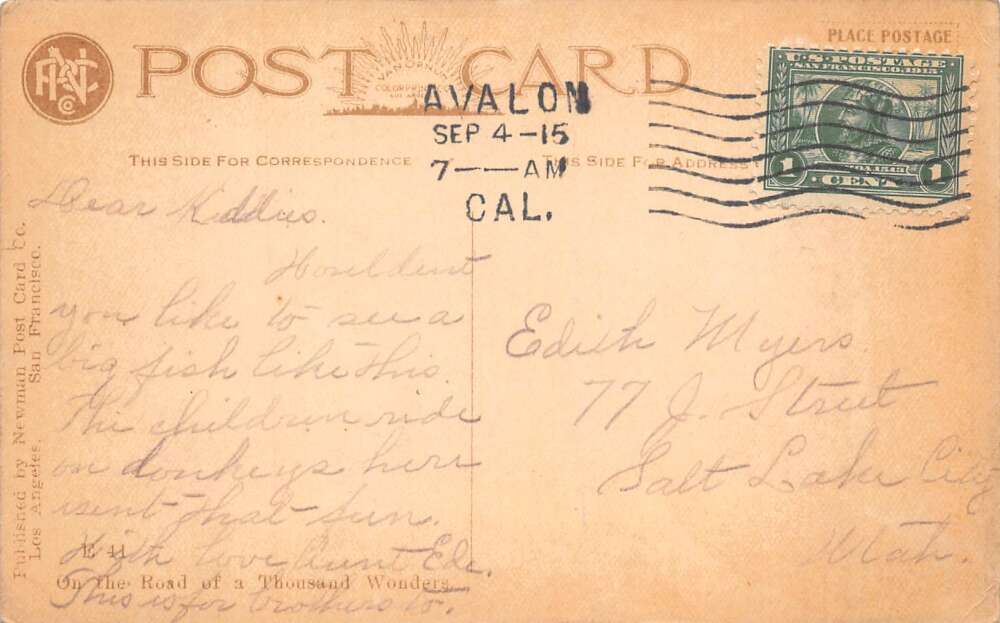 PNC Co
POST CARD
PLACE POSTAGE
U.S. POSTAGE
SAN FRANCISCO 1915
1 CENT 1
AVALON
SEP 4-15
7--AM
CAL.
THIS SIDE FOR CORRESPONDENCE
THIS SIDE FOR ADDRESS
Dear Kiddies.
you like to see a
big fish like this.
The children ride
on donkeys here
isent that fun.
With love Aunt Ede.
This is for brothers to.
Edith Myers
77 J. Street
Salt Lake City
Utah.
Published by Newman Post Card Co.
Los Angeles. San Francisco.
E 41
On the Road of a Thousand Wonders